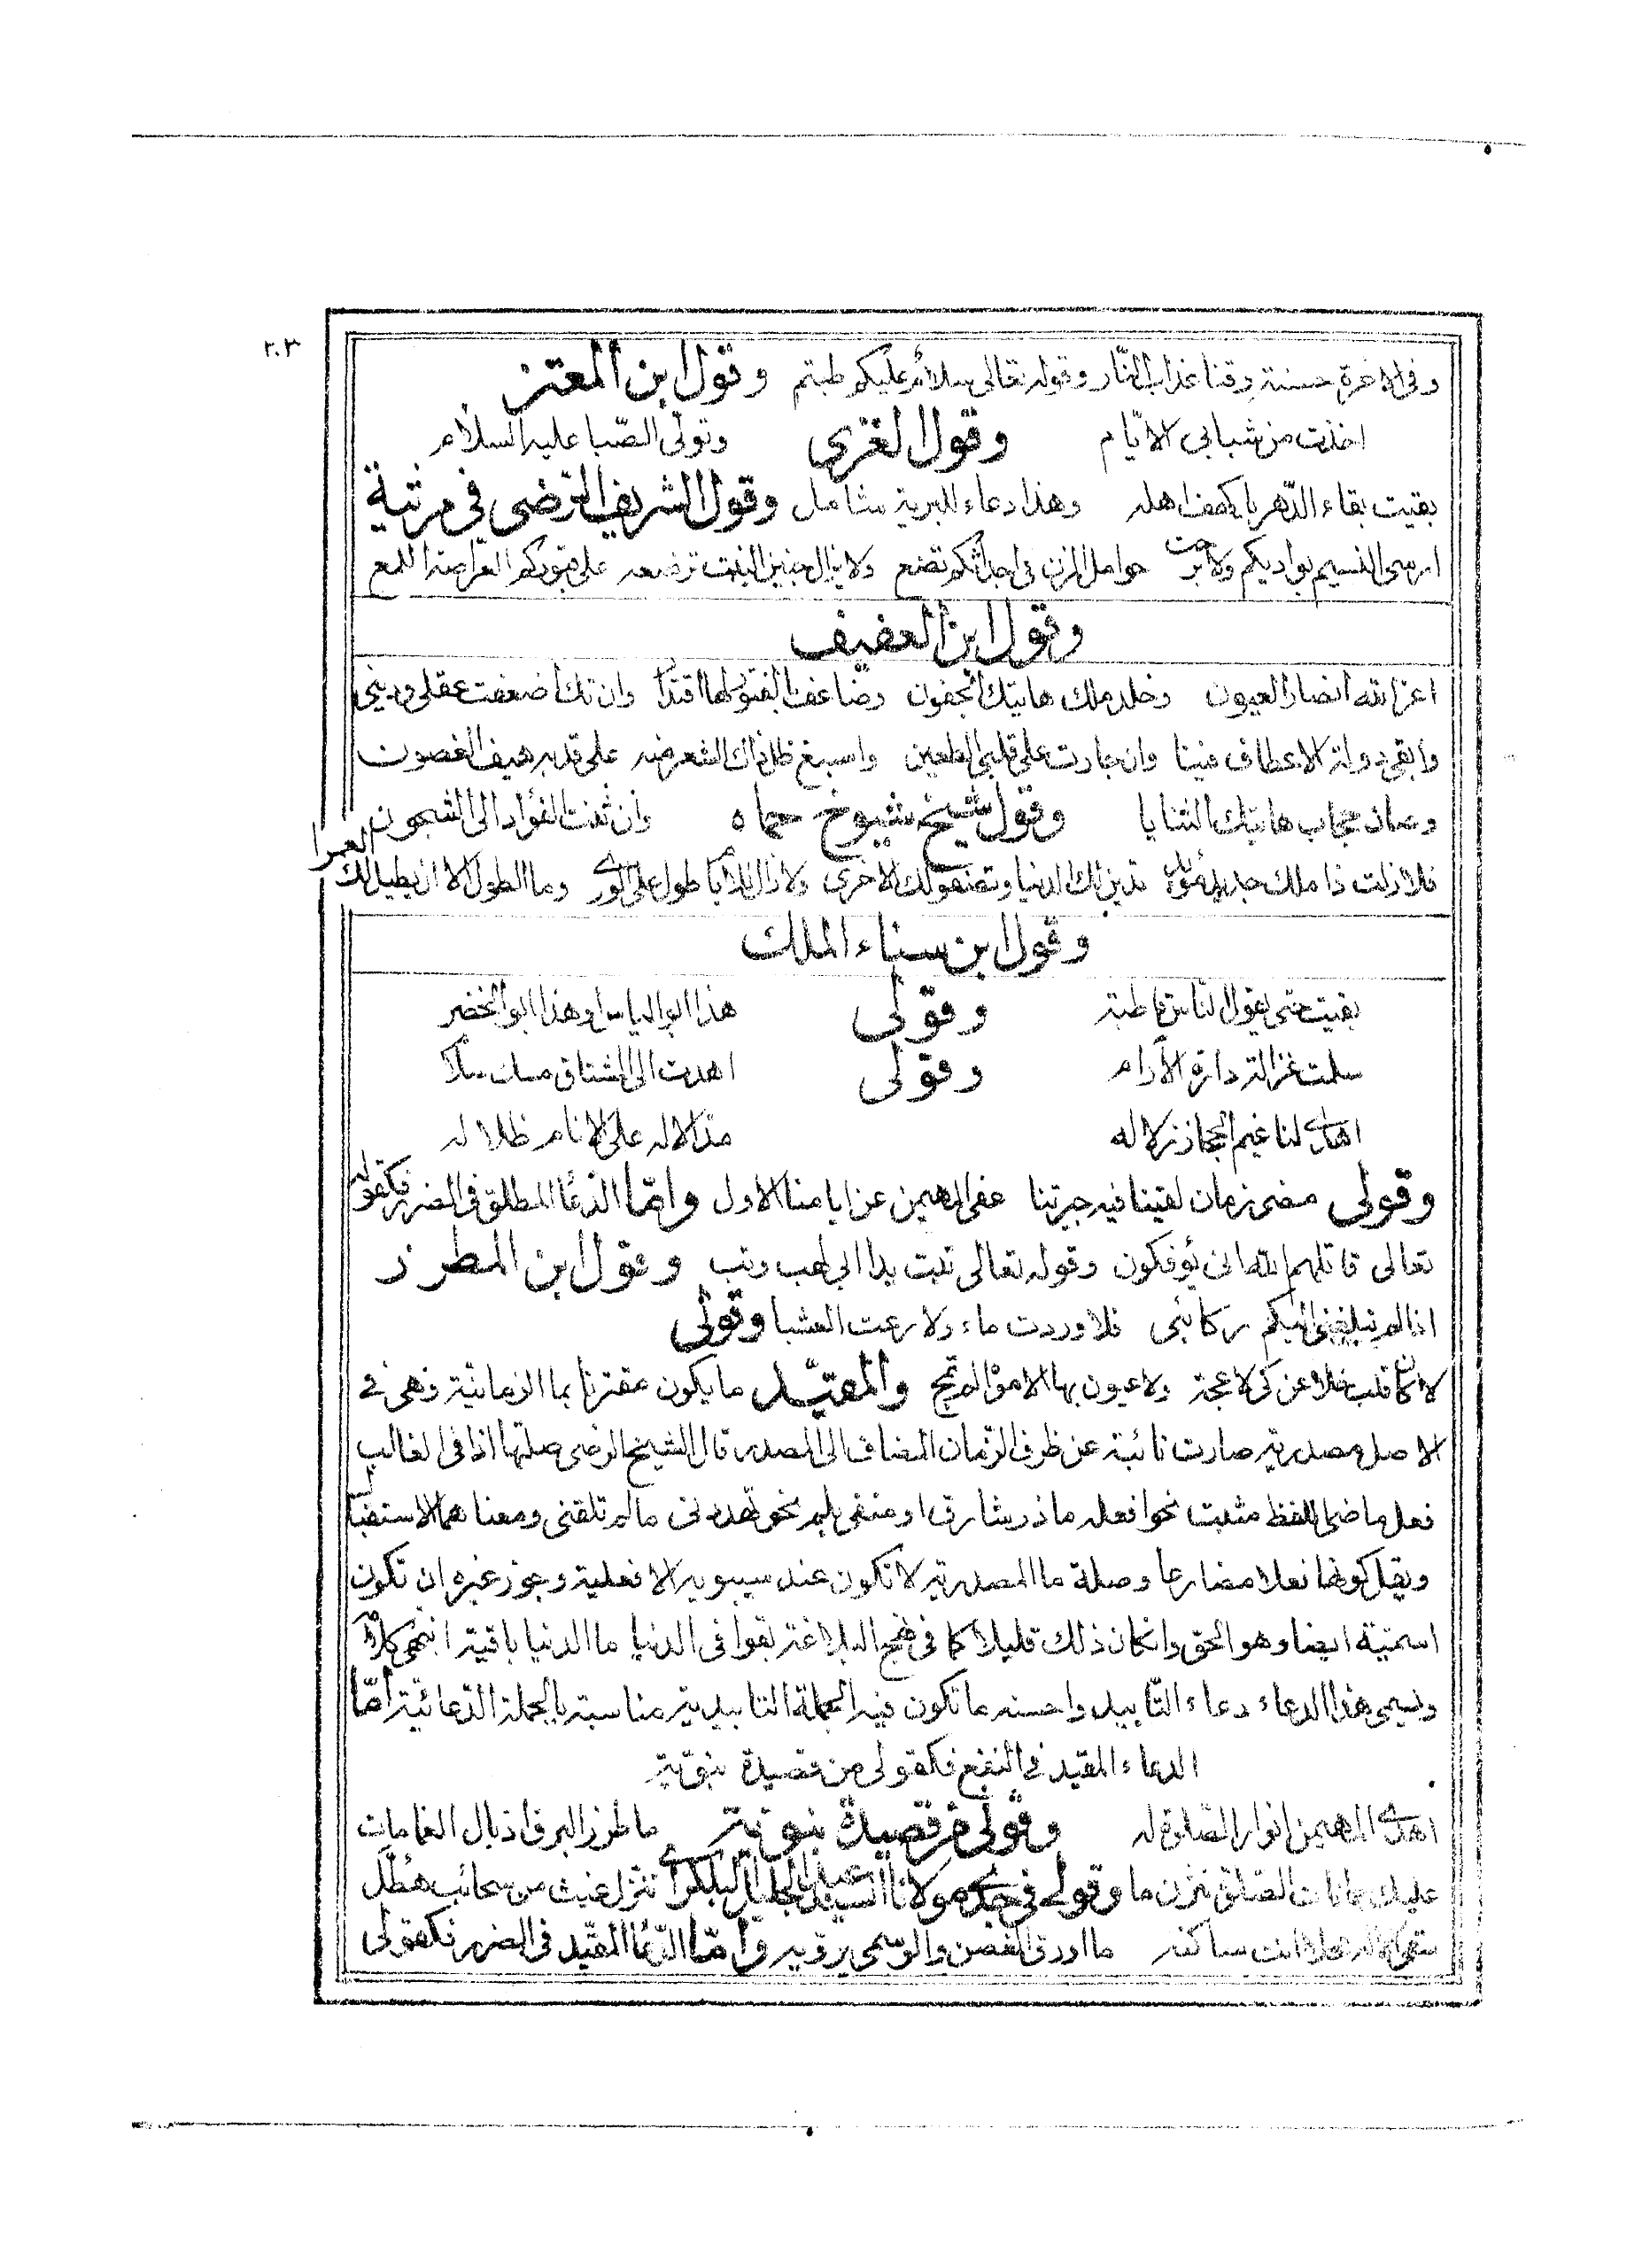 ٢٠٣
وفي الاخرة حسنة وقنا عذاب النّار وقوله تعالى سلام عليكم طبتم وقول ابن المعتز
اخذت من شبابي الايّام وقول الغزي وتولّى الصّبا عليه السلام
بقيت بقاء الدّهر يا كهف اهله وهذا دعاء للبرية شامل وقول الشريف الرّضي في مرثية
ارسى النسيم بواديكم ولا برحت حوامل المزن في اجداثكم تضع ولا يزال جنين النبت ترضعه على قبوركم العراصة اللمع
وقول ابن العفيف
اعز الله انصار العيون وخلد ملك هاتيك الجفون وضاعف بالفتور لها اقتدارا وان تك اضعفت عقلي وديني
وابقى دولة الاعطاف فينا وان جارت على قلبي الطعين واسبغ ظل ذاك الشعر منه على قد به هيف الغصون
وصان حجاب هاتيك الثنايا وقول شيخ شيوخ حماه وان ثنت الفؤاد الى الشجون
فلا زلت ذا ملك جديد مؤبد تدين لك الدنيا وتصفو لك الاخرى ولا زال للدا يا طول على الورى وما الطول الا ان يطيل لك العمرا
وقول ابن سناء الملك
بقيت حتى يقول الناس قاطبة وقولي هذا ابو الياس او هذا ابو الخضر
سلمت غزالة دارة الآرام وقولي اهدت الى المشتاق مسك سلام
اهدى لنا غيم الحجاز زلاله مدّ الاله على الانام ظلاله
وقولي مضى زمان لقينا فيه جيرتنا عفى المهيمن عن ايامنا الاول وامّا الدّعاء المطلق في الضرر فكقوله
تعالى قاتلهم الله انى يؤفكون وقوله تعالى تبت يدا ابي لهب وتب وقول ابن المطرز
اذا لم تبلغني اليكم ركائبي فلا وردت ماء ولا رعت العشبا وقولي
لا كان قلب خلا عن كي لاعجة ولا عيون بها الامواه لم تمج والمقيّد ما يكون مقترنا بما الزمانية وهي في
الاصل مصدرية صارت نائبة عن ظرف الزّمان المضاف الى المصدر قال الشيخ الرضى صلتها اذا في الغالب
فعل ماضى اللفظ مثبت نحو افعله ما ذر شارق او منفى بلم نحو تهددني ما لم تلقنى ومعناهما الاستقبال
ويقل كونها فعلا مضارعا وصلة ما المصدرية لا تكون عند سيبويه الا فعلية وجوز غيره ان تكون
اسميّة ايضا وهو الحق وان كان ذلك قليلا كما في نهج البلاغة بقوا في الدنيا ما الدنيا باقية انتهى كلامه
ويسمى هذا الدعاء دعاء التّابيد واحسنه ما تكون فيه الجملة التابيدية مناسبة بالجملة الدّعائيّة امّا
الدعاء المقيد في النفع فكقولي من قصيدة نبوية
اهدى المهيمن انوار الصّلوة له وقولي من قصيدة نبوية ما طرز البرق اذيال الغمامات
عليك جمانات الصّلوة نثرن ما وقولي في جدي مولانا السيد عبد الجليل البلكرامي تنزل غيث من سحائب هُطّل
سقى الاله محلا انت ساكنه ما اورق الغصن والوسمى يرويه وامّا الدّعاء المقيّد في الضرر فكقولي